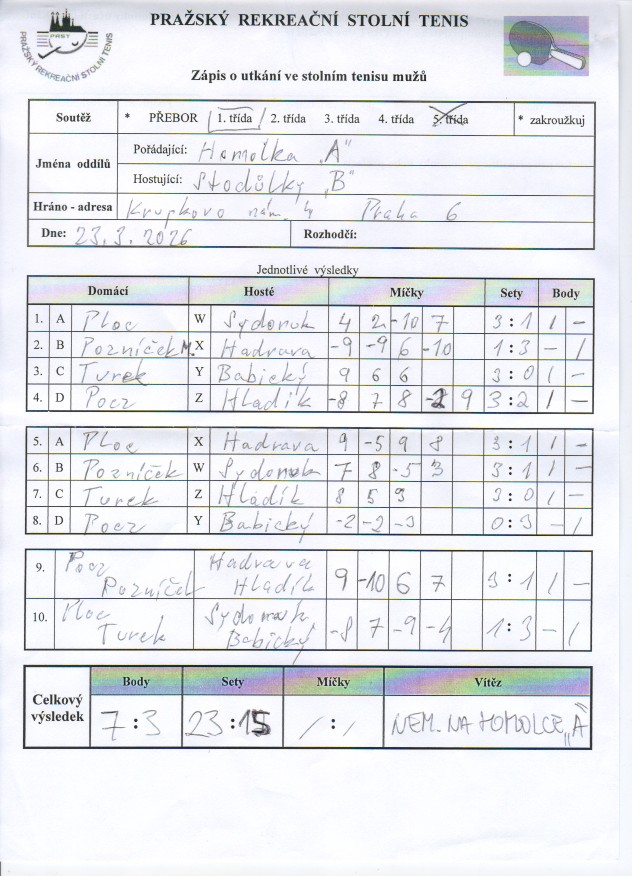 PRAŽSKÝ REKREAČNÍ STOLNÍ TENIS
PRST
PRAŽSKÝ REKREAČNÍ STOLNÍ TENIS
Zápis o utkání ve stolním tenisu mužů
Soutěž * PŘEBOR 1. třída 2. třída 3. třída 4. třída 5. třída * zakroužkuj
Jména oddílů
Pořádající: Homolka „A"
Hostující: Stodůlky „B"
Hráno - adresa Krupkovo nám. 4 Praha 6
Dne: 23.3.2026 Rozhodčí:
Jednotlivé výsledky
Domácí Hosté Míčky Sety Body
1. A Ploc W Sydoruk 4 2 -10 7 3 : 1 1 -
2. B Pozníček M. X Hadrava -9 -9 6 -10 1 : 3 - 1
3. C Turek Y Babický 9 6 6 3 : 0 1 -
4. D Pocz Z Hladík -8 7 8 -2 9 3 : 2 1 -
5. A Ploc X Hadrava 9 -5 9 8 3 : 1 1 -
6. B Pozníček W Sydoruk 7 8 -5 3 3 : 1 1 -
7. C Turek Z Hladík 8 5 9 3 : 0 1 -
8. D Pocz Y Babický -2 -2 -3 0 : 3 - 1
9. Pocz Hadrava
Pozníček Hladík 9 -10 6 7 3 : 1 1 -
10. Ploc Sydoruk
Turek Babický -8 7 -9 -4 1 : 3 - 1
Celkový výsledek
Body Sety Míčky Vítěz
7 : 3 23 : 15 / : / NEM. NA HOMOLCE „A"